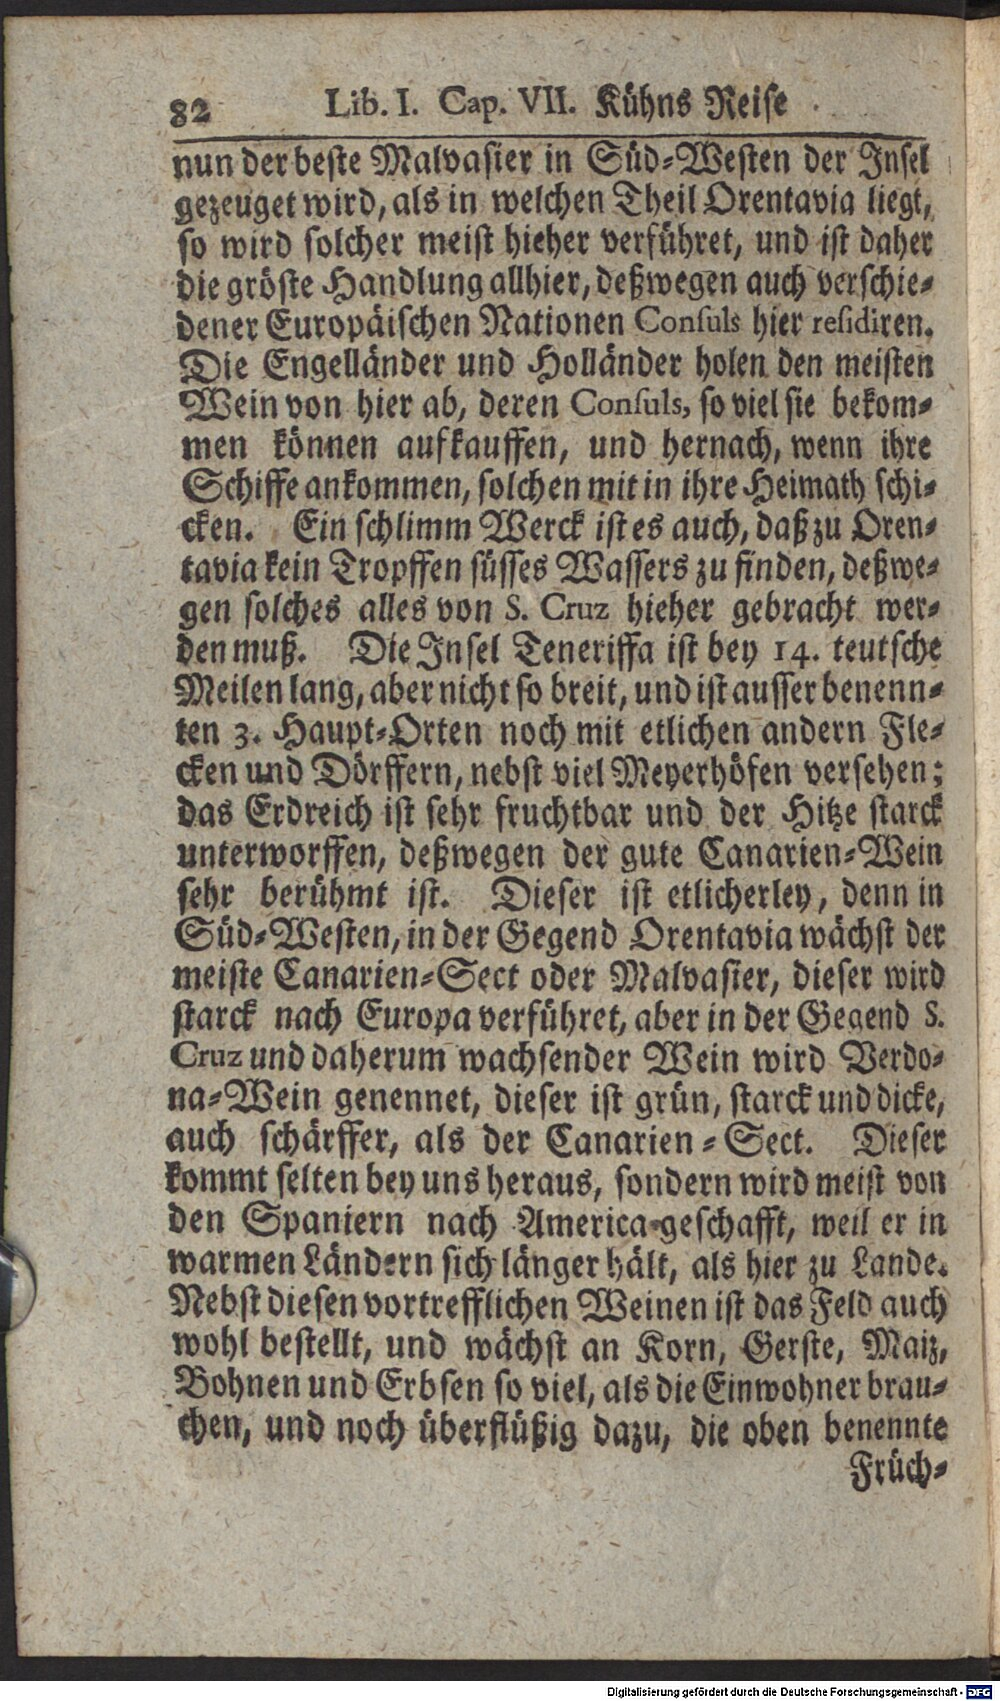 82 Lib. I. Cap. VII. Kühns Reise
nun der beste Malvasier in Süd-Westen der Insel
gezeuget wird, als in welchen Theil Orentavia liegt,
so wird solcher meist hieher verführet, und ist daher
die gröste Handlung allhier, deßwegen auch verschie-
dener Europäischen Nationen Consuls hier residiren.
Die Engelländer und Holländer holen den meisten
Wein von hier ab, deren Consuls, so viel sie bekom-
men können aufkauffen, und hernach, wenn ihre
Schiffe ankommen, solchen mit in ihre Heimath schi-
cken. Ein schlimm Werck ist es auch, daß zu Oren-
tavia kein Tropffen süsses Wassers zu finden, deßwe-
gen solches alles von S. Cruz hieher gebracht wer-
den muß. Die Insel Teneriffa ist bey 14. teutsche
Meilen lang, aber nicht so breit, und ist ausser benenn-
ten 3. Haupt-Orten noch mit etlichen andern Fle-
cken und Dörffern, nebst viel Meyerhöfen versehen;
das Erdreich ist sehr fruchtbar und der Hitze starck
unterworffen, deßwegen der gute Canarien-Wein
sehr berühmt ist. Dieser ist etlicherley, denn in
Süd-Westen, in der Gegend Orentavia wächst der
meiste Canarien-Sect oder Malvasier, dieser wird
starck nach Europa verführet, aber in der Gegend S.
Cruz und daherum wachsender Wein wird Verdo-
na-Wein genennet, dieser ist grün, starck und dicke,
auch schärffer, als der Canarien-Sect. Dieser
kommt selten bey uns heraus, sondern wird meist von
den Spaniern nach America geschafft, weil er in
warmen Ländern sich länger hält, als hier zu Lande.
Nebst diesen vortrefflichen Weinen ist das Feld auch
wohl bestellt, und wächst an Korn, Gerste, Maiz,
Bohnen und Erbsen so viel, als die Einwohner brau-
chen, und noch überflüßig dazu, die oben benennte
Früch-
Digitalisierung gefördert durch die Deutsche Forschungsgemeinschaft - DFG